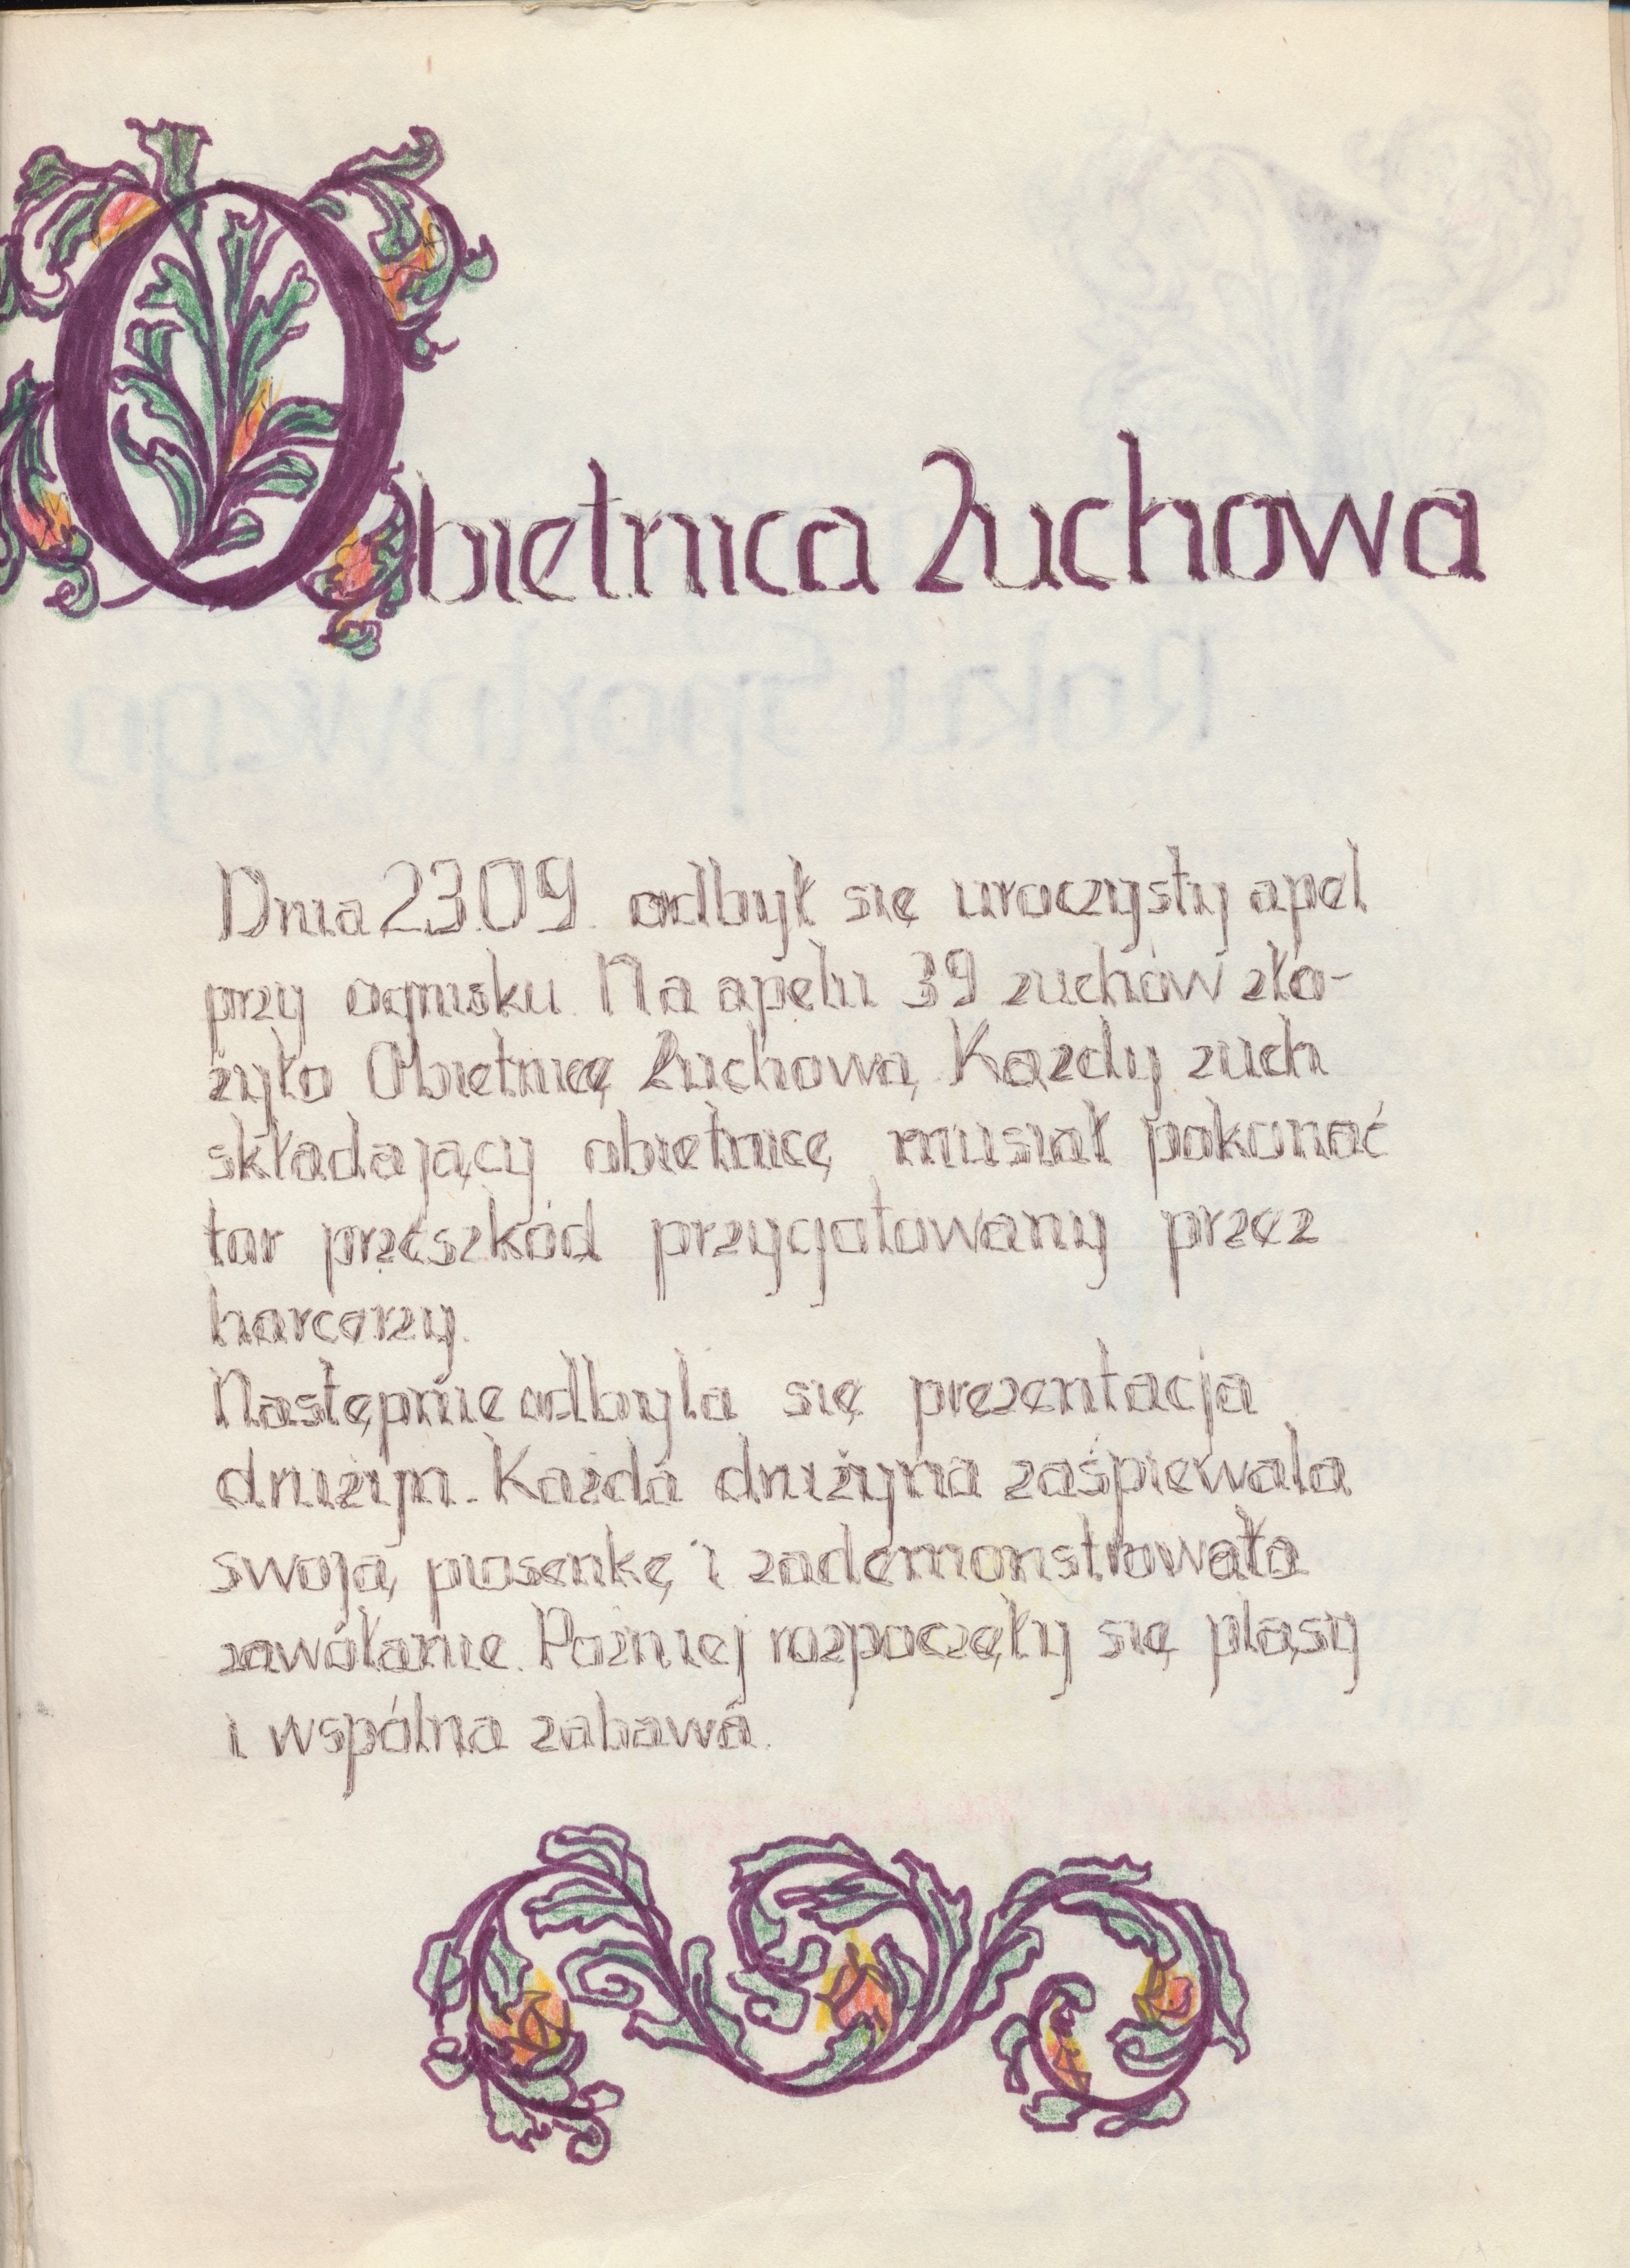 Obietnica Zuchowa
Dnia 23.09. odbył się uroczysty apel
przy ognisku. Na apelu 39 zuchów zło-
żyło Obietnicę Zuchową. Każdy zuch
składający obietnicę musiał pokonać
tor przeszkód przygotowany przez
harcerzy.
Następnie odbyla się prezentacja
drużyn. Każda drużyna zaśpiewala
swoją piosenkę i zademonstrowała
zawołanie. Poźniej rozpoczęły się pląsy
i wspólna zabawa.